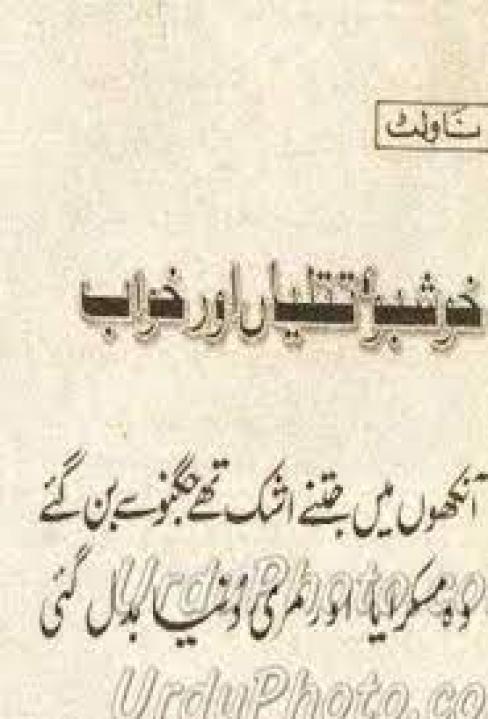 ناولٹ
خوشبو، تتلیاں اور خواب
آنکھوں میں جتنے اشک تھے جگنو سے بن گئے
وہ مسکرایا اور مری دُنیا بدل گئی
UrduPhoto.co
UrduPhoto.co